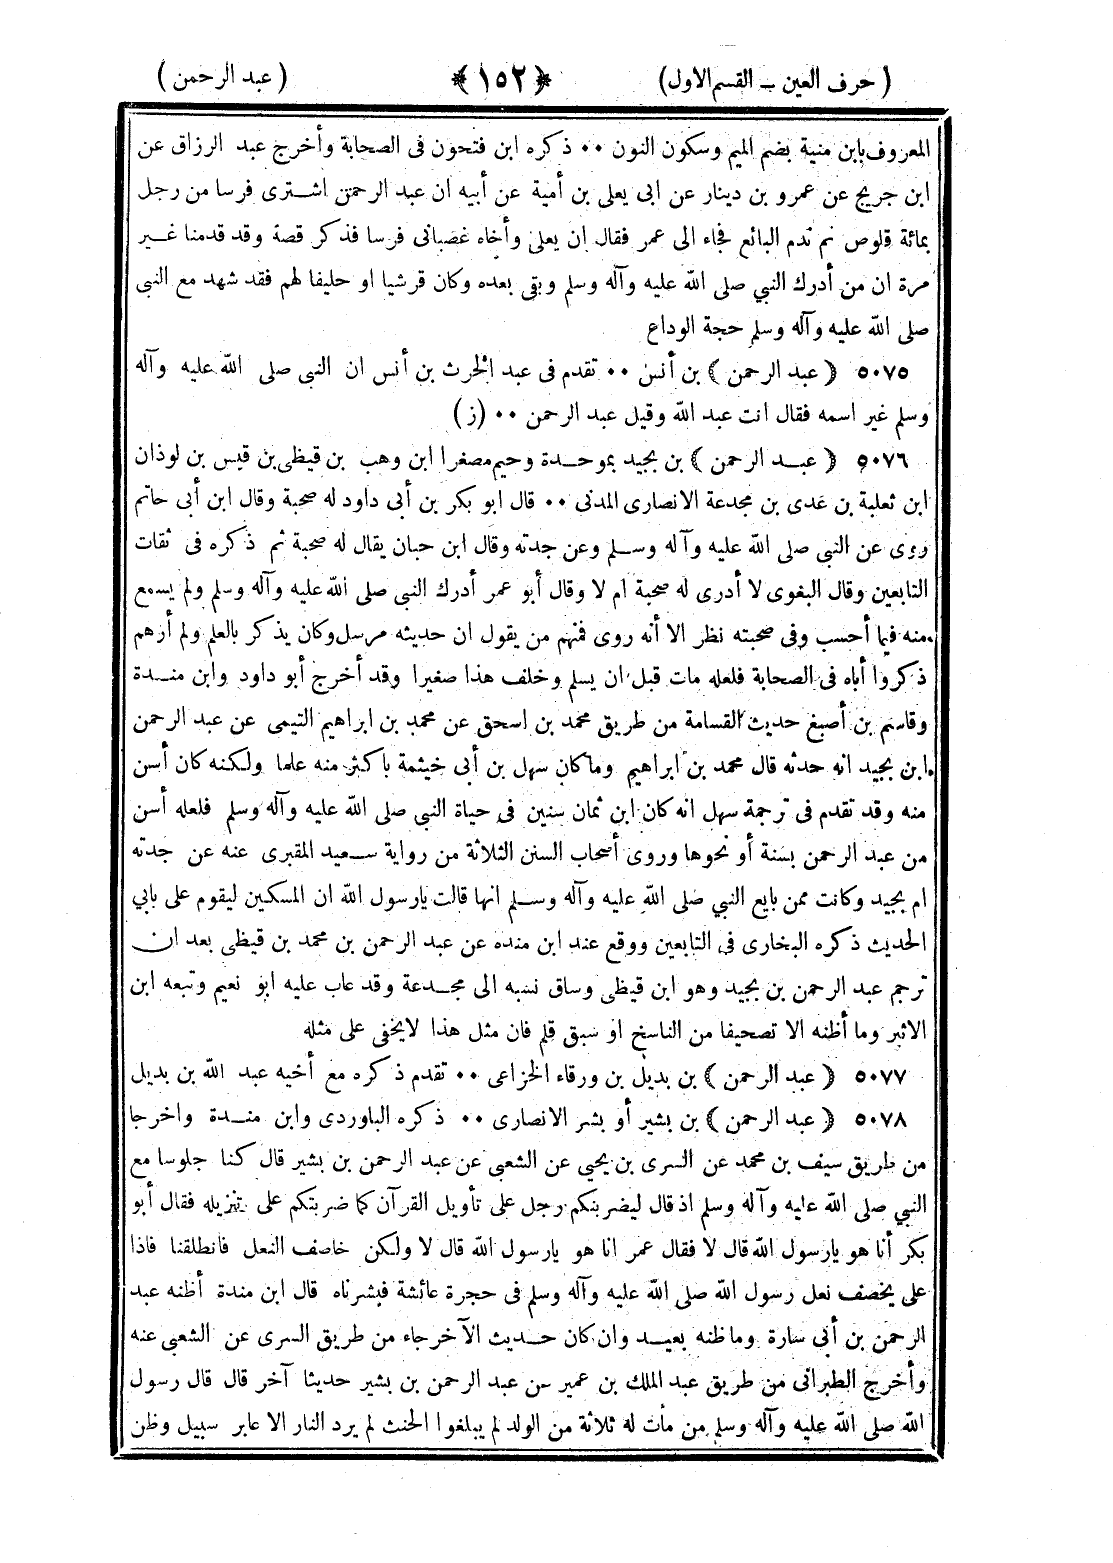 ( حرف العين ــ القسم الاول ) ﴿ ١٥٢ ﴾ ( عبد الرحمن )
المعروف بابن منية بضم الميم وسكون النون ٠٠ ذكره ابن فتحون فى الصحابة وأخرج عبد الرزاق عن
ابن جريج عن عمرو بن دينار عن ابى يعلى بن أمية عن أبيه ان عبد الرحمن اشترى فرسا من رجل
بمائة قلوص ثم ندم البائع فجاء الى عمر فقال ان يعلى وأخاه غصبانى فرسا فذكر قصة وقد قدمنا غير
مرة ان من أدرك النبي صلى الله عليه وآله وسلم وبقى بعده وكان قرشيا او حليفا لهم فقد شهد مع النبى
صلى الله عليه وآله وسلم حجة الوداع
٥٠٧٥ ﴿ عبد الرحمن ﴾ بن أنس ٠٠ تقدم فى عبد الحرث بن أنس ان النبى صلى الله عليه وآله
وسلم غير اسمه فقال انت عبد الله وقيل عبد الرحمن ٠٠ (ز)
٥٠٧٦ ﴿ عبد الرحمن ﴾ بن بجيد بموحدة وجيم مصغرا ابن وهب بن قيظى بن قيس بن لوذان
ابن ثعلبة بن عدى بن مجدعة الانصارى المدنى ٠٠ قال ابو بكر بن أبى داود له صحبة وقال ابن أبى حاتم
روى عن النبى صلى الله عليه وآله وسلم وعن جدته وقال ابن حبان يقال له صحبة ثم ذكره فى ثقات
التابعين وقال البغوى لا أدرى له صحبة ام لا وقال أبو عمر أدرك النبى صلى الله عليه وآله وسلم ولم يسمع
منه فيما أحسب وفى صحبته نظر الا أنه روى فمنهم من يقول ان حديثه مرسل وكان يذكر بالعلم ولم أرهم
ذكروا أباه فى الصحابة فلعله مات قبل ان يسلم وخلف هذا صغيرا وقد أخرج أبو داود وابن مندة
وقاسم بن أصبغ حديث القسامة من طريق محمد بن اسحق عن محمد بن ابراهيم التيمى عن عبد الرحمن
ابن بجيد انه حدثه قال محمد بن ابراهيم وما كان سهل بن أبى خيثمة باكثر منه علما ولكنه كان أسن
منه وقد تقدم فى ترجمة سهل انه كان ابن ثمان سنين فى حياة النبى صلى الله عليه وآله وسلم فلعله أسن
من عبد الرحمن بسنة أو نحوها وروى أصحاب السنن الثلاثة من رواية سعيد المقبرى عنه عن جدته
ام بجيد وكانت ممن بايع النبي صلى الله عليه وآله وسلم انها قالت يارسول الله ان المسكين ليقوم على بابي
الحديث ذكره البخارى فى التابعين ووقع عند ابن منده عن عبد الرحمن بن محمد بن قيظى بعد ان
ترجم عبد الرحمن بن بجيد وهو ابن قيظى وساق نسبه الى مجدعة وقد عاب عليه ابو نعيم وتبعه ابن
الاثير وما أظنه الا تصحيفا من الناسخ او سبق قلم فان مثل هذا لايخفى على مثله
٥٠٧٧ ﴿ عبد الرحمن ﴾ بن بديل بن ورقاء الخزاعى ٠٠ تقدم ذكره مع أخيه عبد الله بن بديل
٥٠٧٨ ﴿ عبد الرحمن ﴾ بن بشير أو بشر الانصارى ٠٠ ذكره الباوردى وابن مندة واخرجا
من طريق سيف بن محمد عن السرى بن يحيي عن الشعبى عن عبد الرحمن بن بشير قال كنا جلوسا مع
النبي صلى الله عليه وآله وسلم اذ قال ليضربنكم رجل على تأويل القرآن كما ضربتكم على تنزيله فقال أبو
بكر أنا هو يارسول الله قال لا فقال عمر انا هو يارسول الله قال لا ولكن خاصف النعل فانطلقنا فاذا
على يخصف نعل رسول الله صلى الله عليه وآله وسلم فى حجرة عائشة فبشرناه قال ابن مندة أظنه عبد
الرحمن بن أبى سارة وما ظنه ببعيد وان كان حديث الآخر جاء من طريق السرى عن الشعبى عنه
وأخرج الطبرانى من طريق عبد الملك بن عمير عن عبد الرحمن بن بشير حديثا آخر قال قال رسول
الله صلى الله عليه وآله وسلم من مات له ثلاثة من الولد لم يبلغوا الحنث لم يرد النار الا عابر سبيل وظن